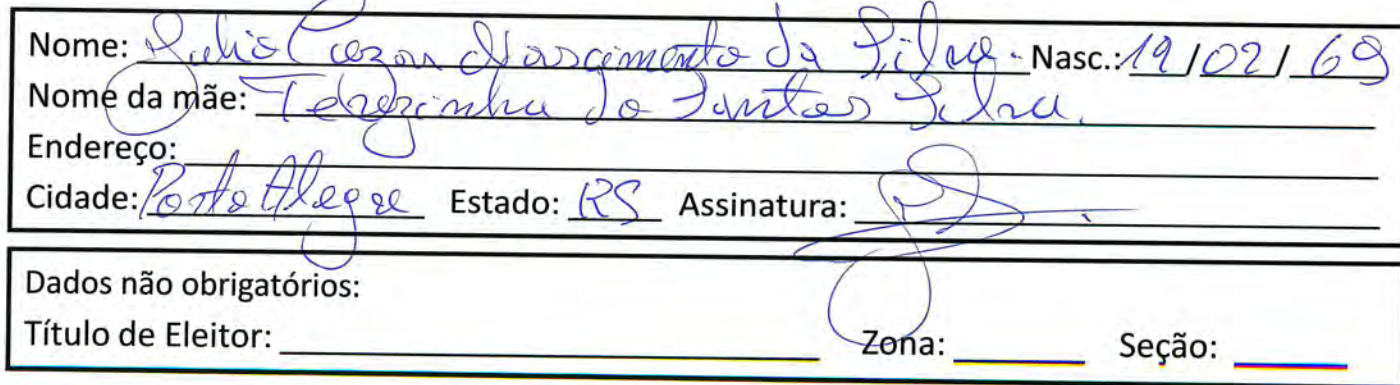 Nome: Julio Cezar Nascimento da Silva. Nasc.: 19/02/69
Nome da mãe: Terezinha do Santos Silva.
Endereço:
Cidade: Porto Alegre Estado: RS Assinatura:
Dados não obrigatórios:
Título de Eleitor: Zona: Seção: